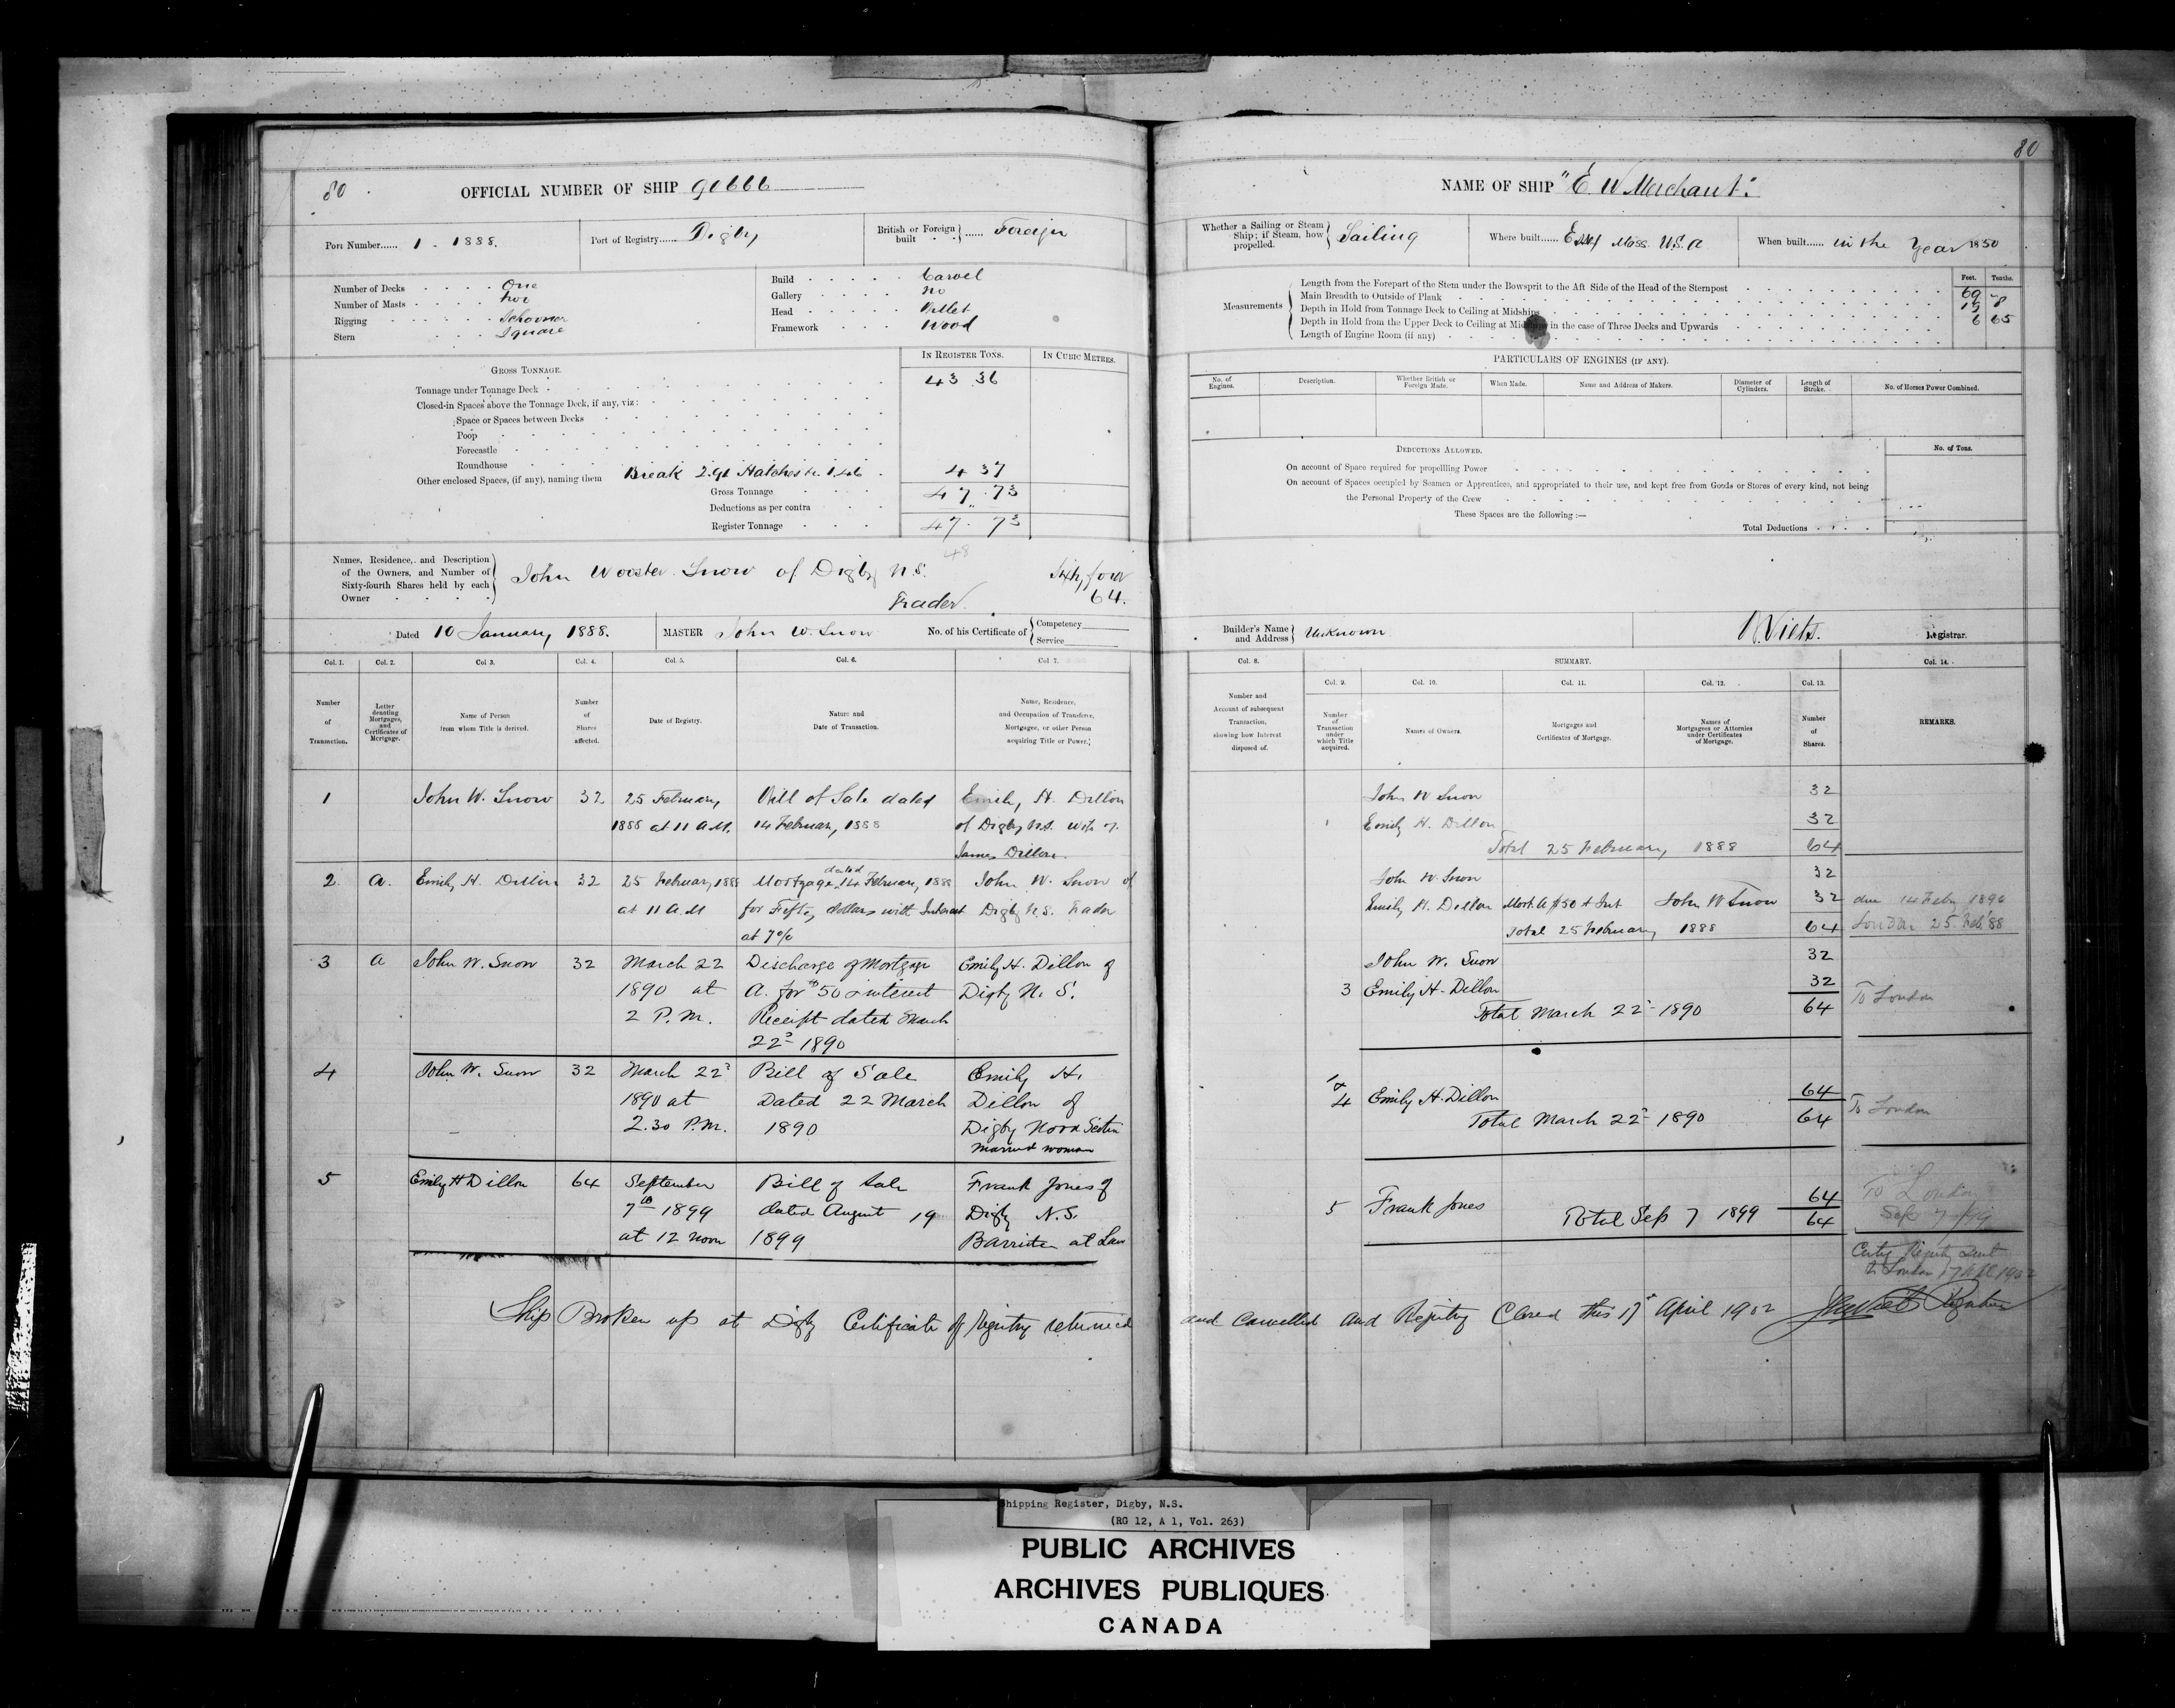 80
OFFICIAL NUMBER OF SHIP 90666
Port Number...... 1 - 1888.
Port of Registry...... Digby
British or Foreign built } ...... Foreign
Number of Decks One
Number of Masts two
Rigging Schooner
Stern Square
Build Carvel
Gallery No
Head Billet
Framework Wood
GROSS TONNAGE.
IN REGISTER TONS.
IN CUBIC METRES.
Tonnage under Tonnage Deck 43 36
Closed-in Spaces above the Tonnage Deck, if any, viz:
Space or Spaces between Decks
Poop
Forecastle
Roundhouse
Other enclosed Spaces, (if any), naming them Break 2.91 Hatches &c 1.46 4 37
Gross Tonnage 47.73
Deductions as per contra "
Register Tonnage 47.73
48
Names, Residence, and Description of the Owners, and Number of Sixty-fourth Shares held by each Owner
John Wooster Snow of Digby N.S. Sixty four
Trader. 64.
Dated 10 January 1888.
MASTER John W. Snow
No. of his Certificate of { Competency
Service
Col. 1.
Col. 2.
Col 3.
Col. 4.
Col. 5.
Col. 6.
Col 7.
Number of Transaction.
Letter denoting Mortgages, and Certificates of Mortgage.
Name of Person from whom Title is derived.
Number of Shares affected.
Date of Registry.
Nature and Date of Transaction.
Name, Residence, and Occupation of Transferee, Mortgagee, or other Person acquiring Title or Power.
1 John W. Snow 32 25 February Bill of Sale dated Emily H. Dillon
1888 at 11 A.M. 14 February, 1888 of Digby N.S. Wife of
James Dillon.
2 A. Emily H. Dillon 32 25 February 1888 Mortgage dated 14 February, 1888 John W. Snow of
at 11 A.M for Fifty dollars with Interest Digby N.S. Trader
at 7%
3 A John W. Snow 32 March 22 Discharge of Mortgage Emily H. Dillon of
1890 at A. for $50 & interest Digby N. S.
2 P.M. Receipt dated March
22d 1890
4 John W. Snow 32 March 22d Bill of Sale Emily H.
1890 at Dated 22 March Dillon of
2.30 P.M. 1890 Digby Nova Scotia
Married woman
5 Emily H Dillon 64 September Bill of Sale Frank Jones of
7th 1899 dated August 19 Digby N.S.
at 12 noon 1899 Barrister at Law
Ship Broken up at Digby Certificate of Registry returned
80
NAME OF SHIP "E. W Merchant".
Whether a Sailing or Steam Ship; if Steam, how propelled. } Sailing
Where built...... Essex Mass. U.S.A
When built...... in the Year 1850
Measurements
Feet. Tenths.
Length from the Forepart of the Stem under the Bowsprit to the Aft Side of the Head of the Sternpost 69
Main Breadth to Outside of Plank 19 8
Depth in Hold from Tonnage Deck to Ceiling at Midships 6 65
Depth in Hold from the Upper Deck to Ceiling at Midships in the case of Three Decks and Upwards
Length of Engine Room (if any)
PARTICULARS OF ENGINES (IF ANY).
No. of Engines.
Description.
Whether British or Foreign Made.
When Made.
Name and Address of Makers.
Diameter of Cylinders.
Length of Stroke.
No. of Horses Power Combined.
DEDUCTIONS ALLOWED.
No. of Tons.
On account of Space required for propellling Power
On account of Spaces occupied by Seamen or Apprentices, and appropriated to their use, and kept free from Goods or Stores of every kind, not being
the Personal Property of the Crew
These Spaces are the following:—
Total Deductions
Builder's Name and Address } Unknown
Viets. Registrar.
Col. 8.
SUMMARY.
Col. 14.
Col. 9.
Col. 10.
Col. 11.
Col. 12.
Col. 13.
Number and Account of subsequent Transaction, showing how Interest disposed of.
Number of Transaction under which Title acquired.
Names of Owners.
Mortgages and Certificates of Mortgage.
Names of Mortgagees or Attornies under Certificates of Mortgage.
Number of Shares.
REMARKS.
John W Snow 32
1 Emily H. Dillon 32
Total 25 February, 1888 64
John W. Snow 32
Emily H. Dillon Mort. A $50 & Int John W Snow 32 due 14 Feby 1890
Total 25 February 1888 64 London 25 Feb '88
John W. Snow 32
3 Emily H. Dillon 32
Total March 22d 1890 64 To London
1 & 4 Emily H. Dillon 64
Total March 22d 1890 64 To London
5 Frank Jones 64 To London
Total Sep 7 1899 64 Sep 7/99
Certif Registry sent
to London 17 Apl 1902
and Cancelled and Registry Closed this 17 April 1902 Viets Registrar
Shipping Register, Digby, N.S.
(RG 12, A 1, Vol. 263)
PUBLIC ARCHIVES
ARCHIVES PUBLIQUES
CANADA